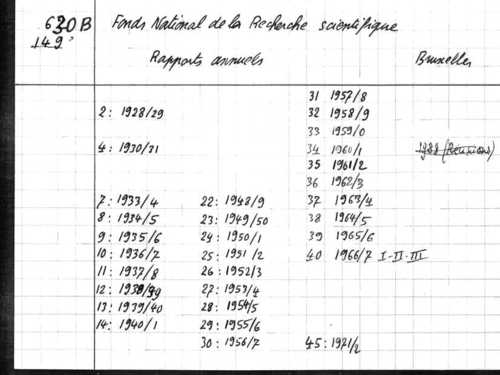 630B Fonds National de la Recherche scientifique
149
Rapports annuels Bruxelles
31 1957/8
2: 1928/29 32 1958/9
33 1959/0
4: 1930/31 34 1960/1
35 1961/2
36 1962/3
7: 1933/4 22: 1948/9 37 1963/4
8: 1934/5 23: 1949/50 38 1964/5
9: 1935/6 24: 1950/1 39 1965/6
10: 1936/7 25: 1951/2 40 1966/7 I-II-III
11: 1937/8 26: 1952/3
12: 1938/39 27: 1953/4
13: 1939/40 28: 1954/5
14: 1940/1 29: 1955/6
30: 1956/7 45: 1971/2